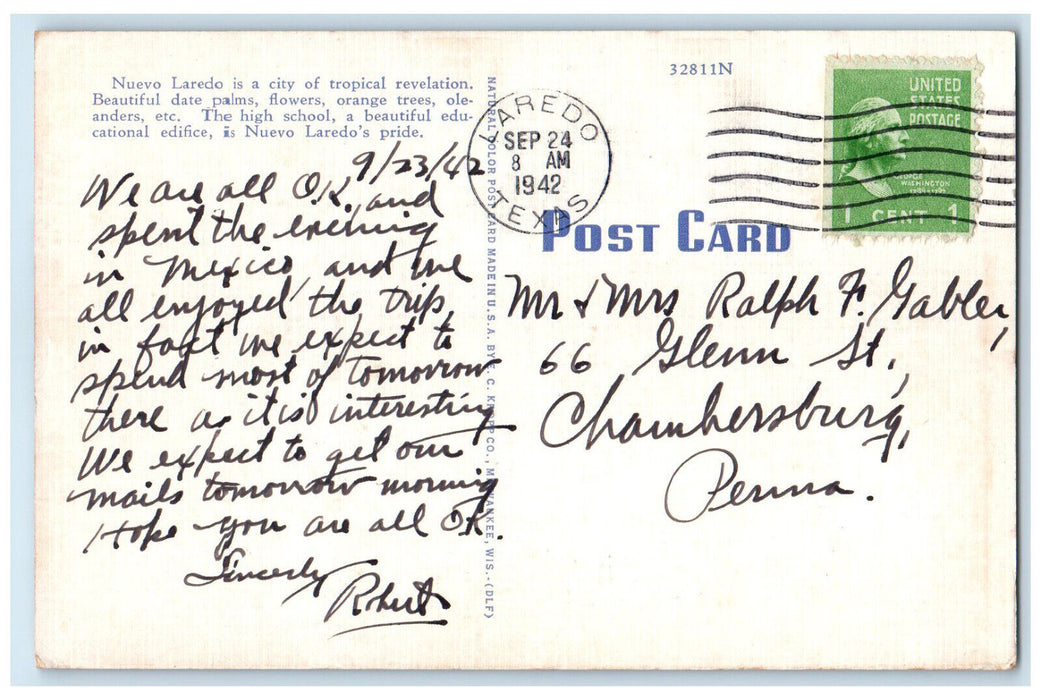 Nuevo Laredo is a city of tropical revelation.
Beautiful date palms, flowers, orange trees, ole-
anders, etc. The high school, a beautiful edu-
cational edifice, is Nuevo Laredo's pride.
9/23/42
We are all O.K. and
spent the evening
in Mexico and we
all enjoyed the trip,
in fact we expect to
spend most of tomorrow
there as it is interesting
We expect to get our
mails tomorrow morning
Hope you are all O.K.
Sincerely
Robert
NATURAL COLOR POST CARD MADE IN U.S.A. BY E. C. KROPP CO., MILWAUKEE, WIS.-(DLF)
32811N
LAREDO
SEP 24
8 AM
1942
TEXAS
UNITED
STATES
POSTAGE
GEORGE
WASHINGTON
1 CENT 1
POST CARD
Mr & Mrs Ralph F. Gabler,
66 Glenn St.,
Chambersburg,
Penna.